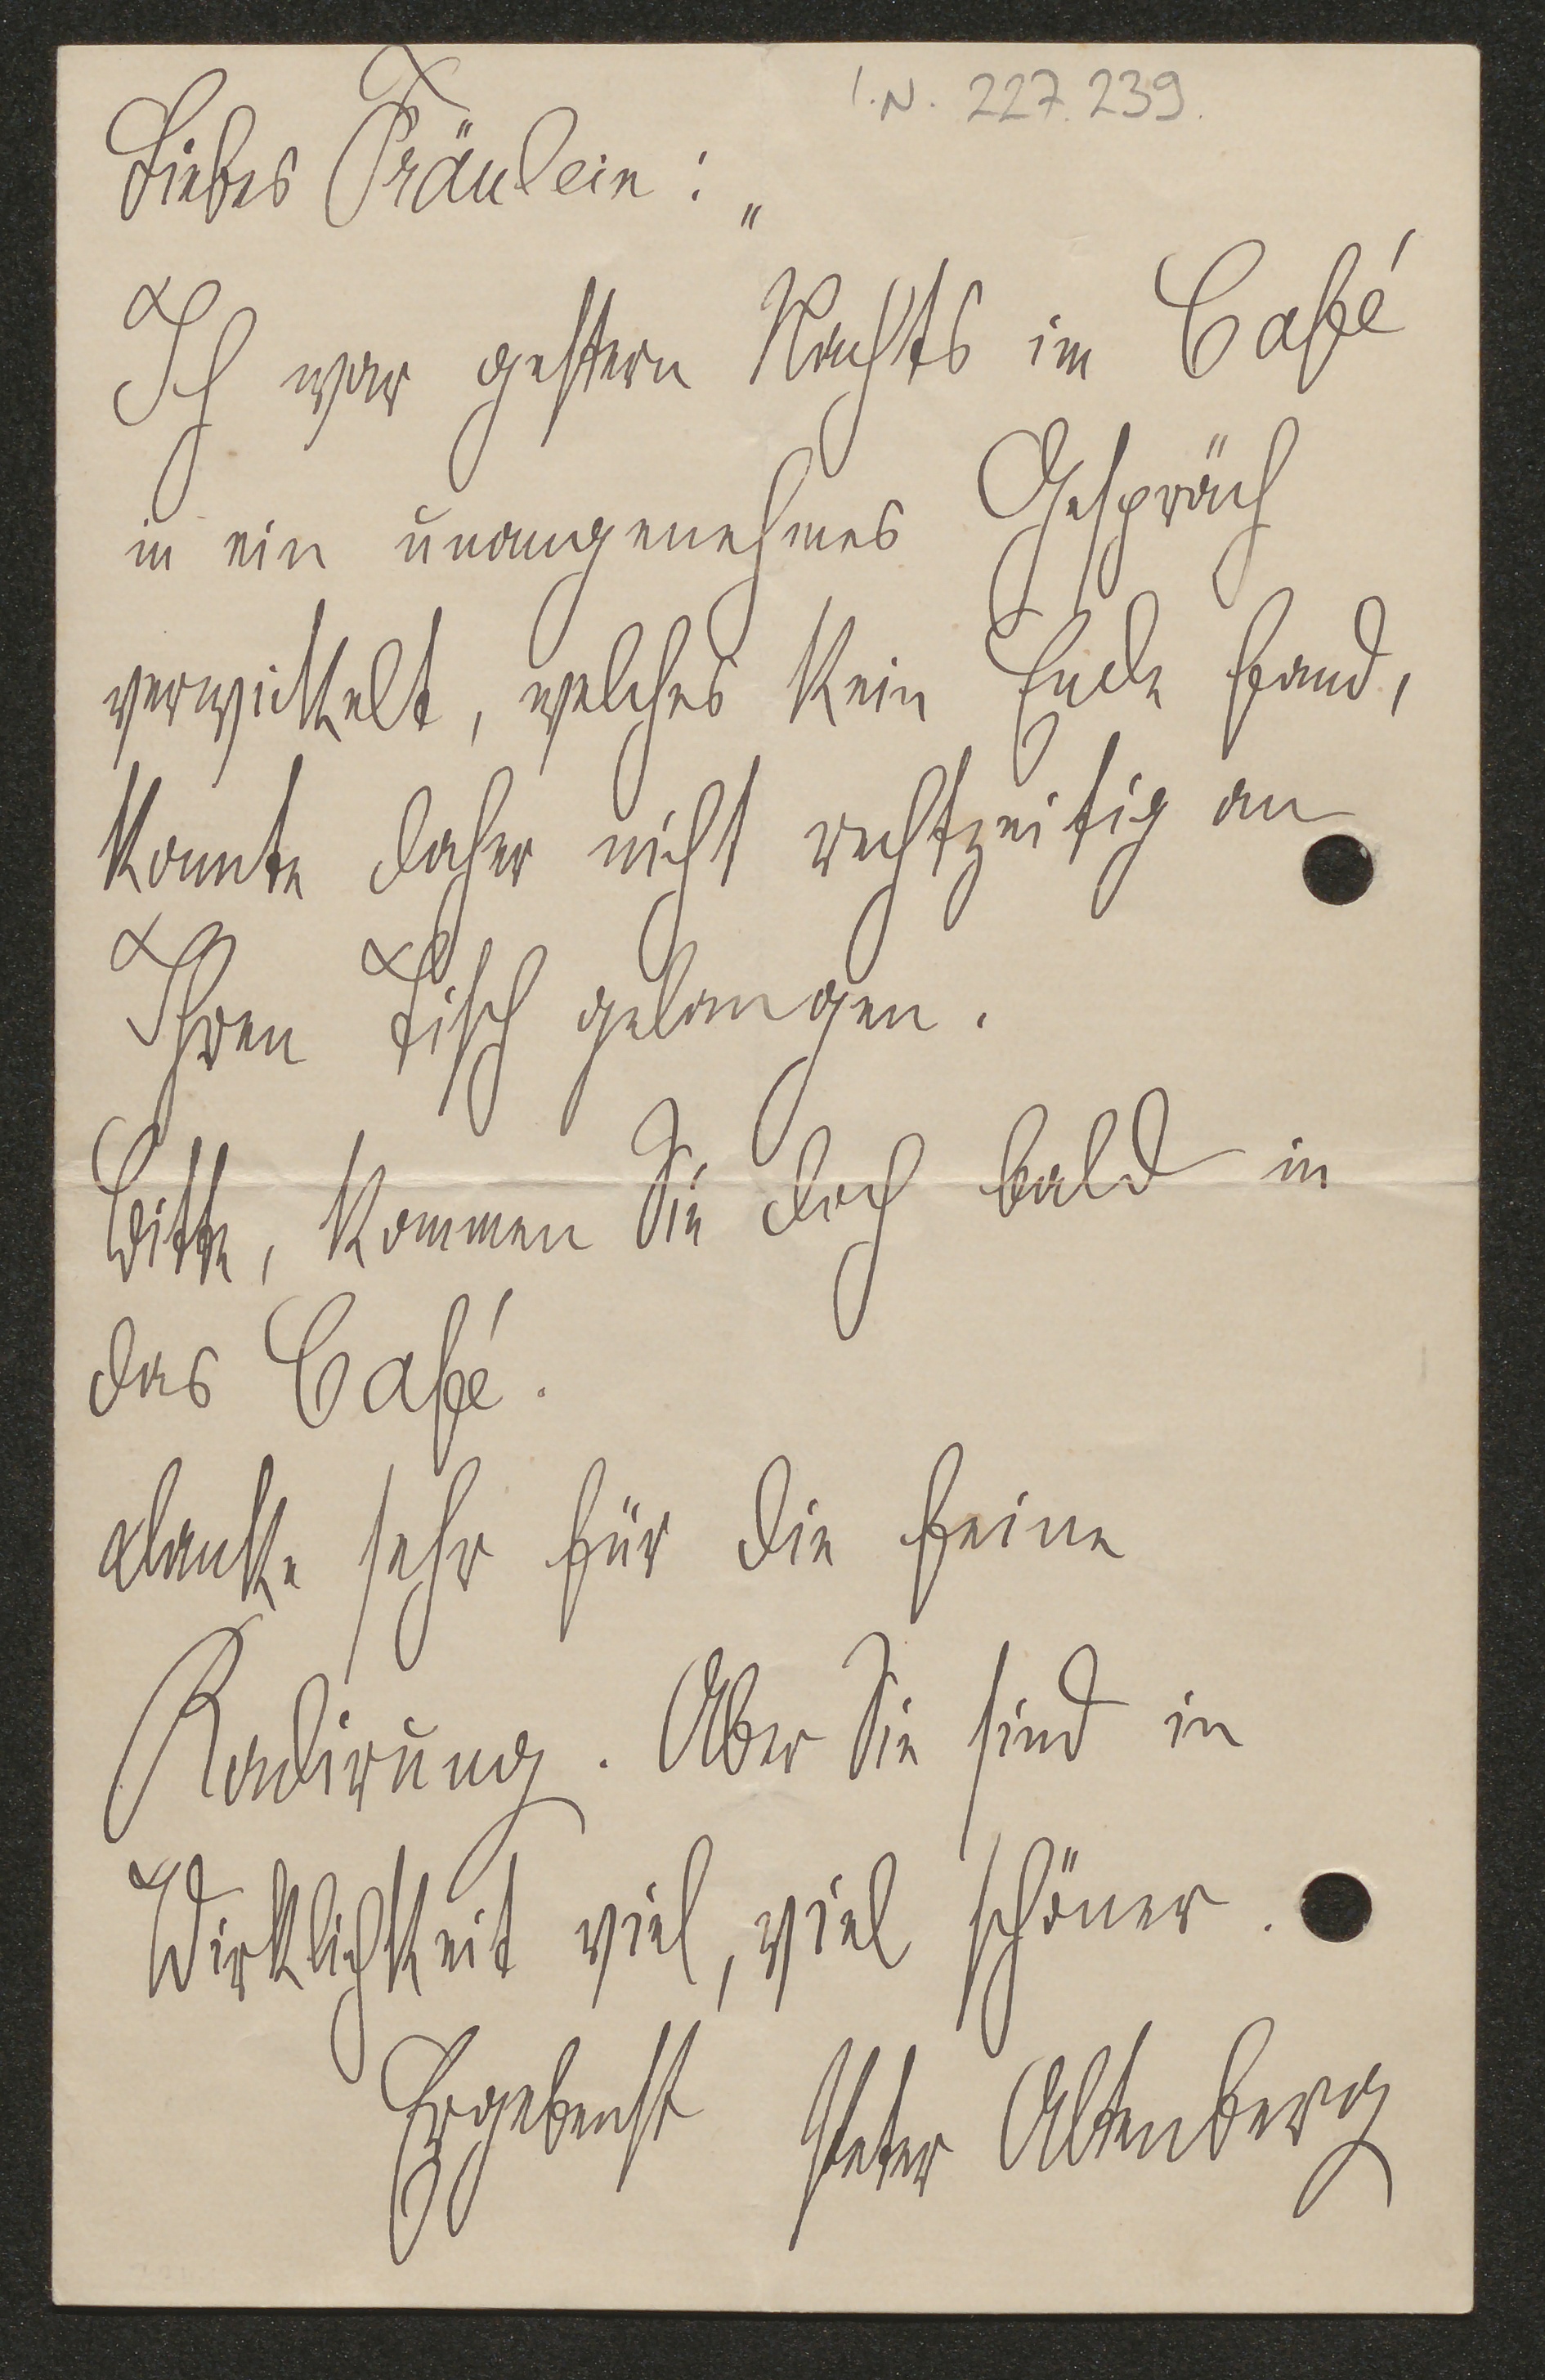 I.N. 227.239.
Liebes Fräulein: „
Ich war gestern Nachts im Café
in ein unangenehmes Gespräch
verwickelt, welches kein Ende fand,
konnte daher nicht rechtzeitig an
Ihren Tisch gelangen.
Bitte, kommen Sie doch bald in
das Café.
danke sehr für die feine
Radirung. Aber Sie sind in
Wirklichkeit viel, viel schöner.
Ergebenst Peter Altenberg